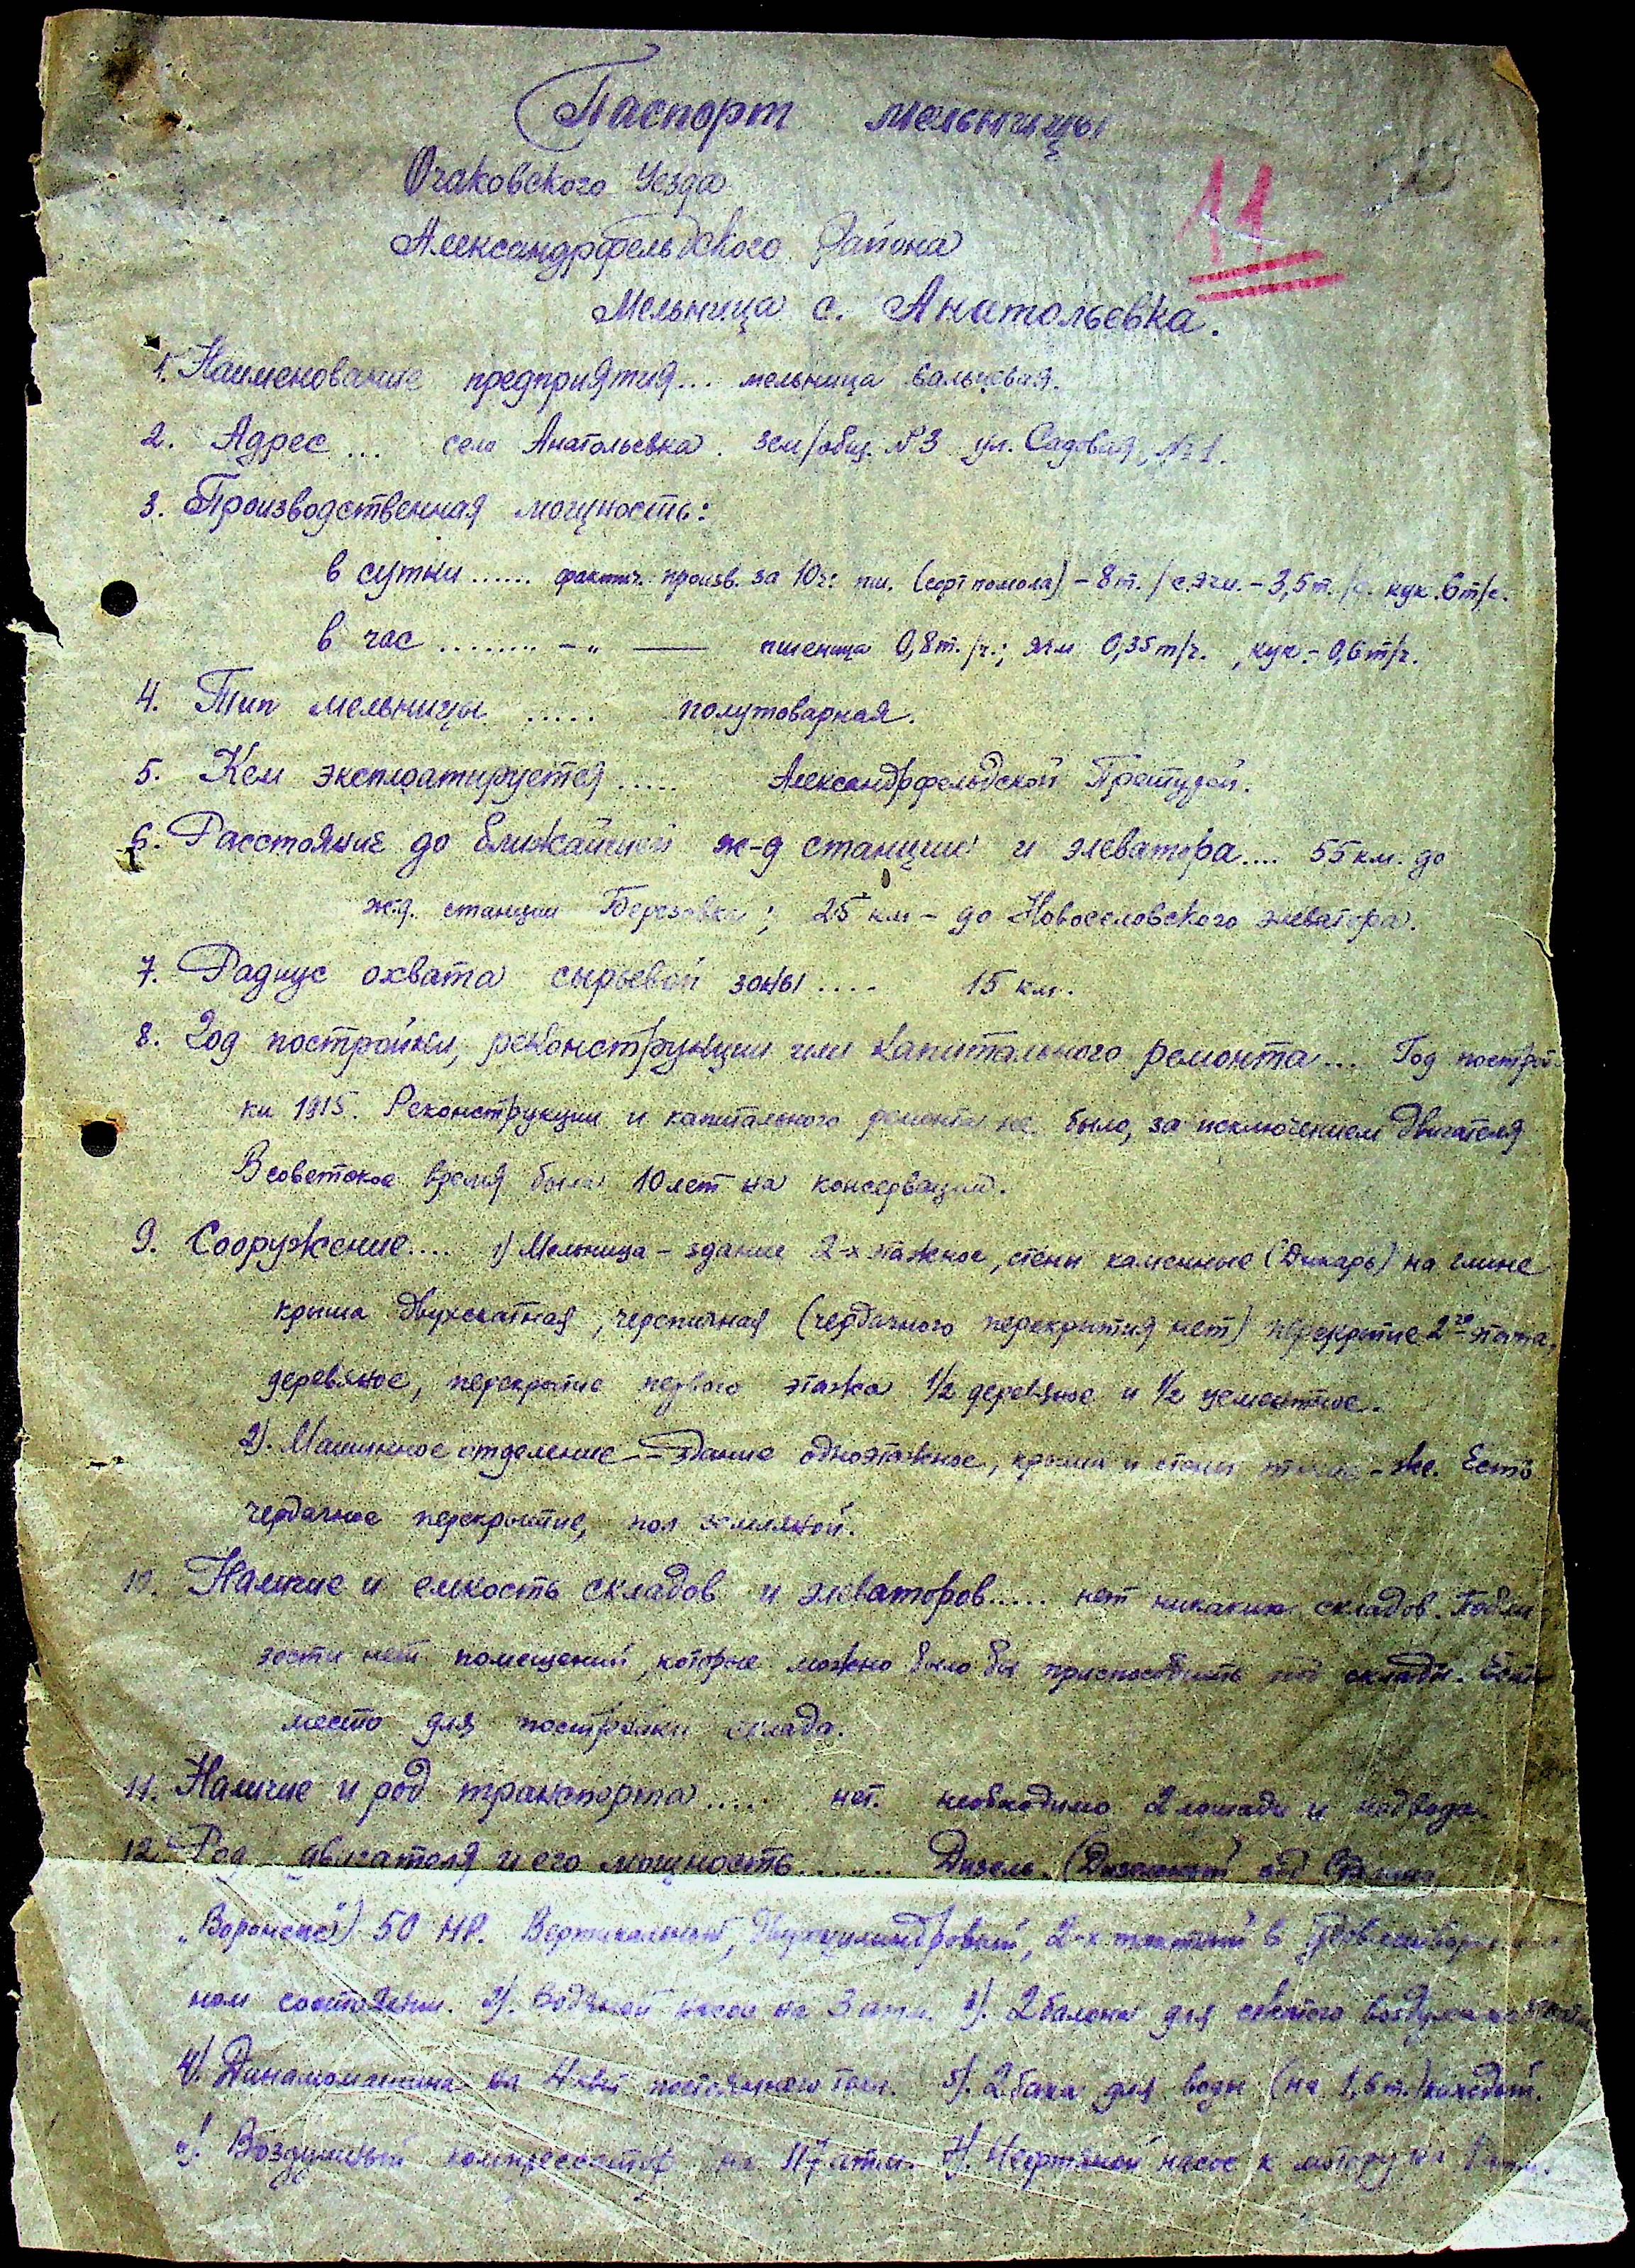 Паспорт мельницы
11
Очаковского Уезда
Александрфельдского Района
Мельница с. Анатольевка.
1. Наименование предприятия... мельница вальцевая.
2. Адрес ... село Анатольевка. зем/общ. №3 ул. Садовая, №1.
3. Производственная мощность:
в сутки ...... фактич. произв. за 10ч: пш. (сорт помола) – 8т./с. ячм. – 3,5т./с. кук. 6т/с.
в час ........ –„ —— пшеница 0,8т./ч.; ячм 0,35т/ч., кук. – 0,6т/ч.
4. Тип мельницы ..... полутоварная.
5. Кем эксплоатируется ..... Александрфельдской Претурой.
6. Расстояние до ближайшей ж-д станции и элеватора.... 55 км. до
ж.д. станции Березовка; 25 км – до Новоселовского элеватора.
7. Радиус охвата сырьевой зоны .... 15 км.
8. Год постройки, реконструкции или капитального ремонта... Год построй-
ки 1915. Реконструкции и капитального ремонта не было, за исключением двигателя
В советское время была 10 лет на консервации.
9. Сооружение.... 1) Мельница – здание 2-х этажное, стены каменные (Дикарь) на глине
крыша двухскатная, черепичная (чердачного перекрытия нет) перекрытие 2го этажа
деревяное, перекрытие первого этажа 1/2 деревяное и 1/2 цементное.
2). Машинное отделение – здание одноэтажное, крыша и стены такие-же. Есть
чердачное перекрытие, пол земляной.
10. Наличие и емкость складов и элеваторов..... нет никаких складов. Побли-
зости нет помещений, которые можно было бы приспособить под склады. Есть
место для постройки склада.
11. Наличие и род транспорта ..... нет. необходимо 2 лошади и подвода.
12. Род двигателя и его мощность ....... Дизель. (
50 HP. Вертикальный, Двухцилиндровый, 2-х тактный в
ном состоянии. 2). Водяной насос на 3 атм. 3). 2 балона для сжатого воздуха
4). Динамомашина на 4 квт постоянного тока. 5). 2 бака для воды (на 1,5 т.) каждый.
Воздушный компрессор на атм. 7). Нефтяной насос к мотору на атм.